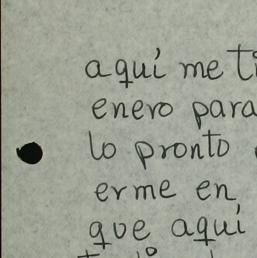 aquí me ti
enero para
lo pronto
erme en
que aquí